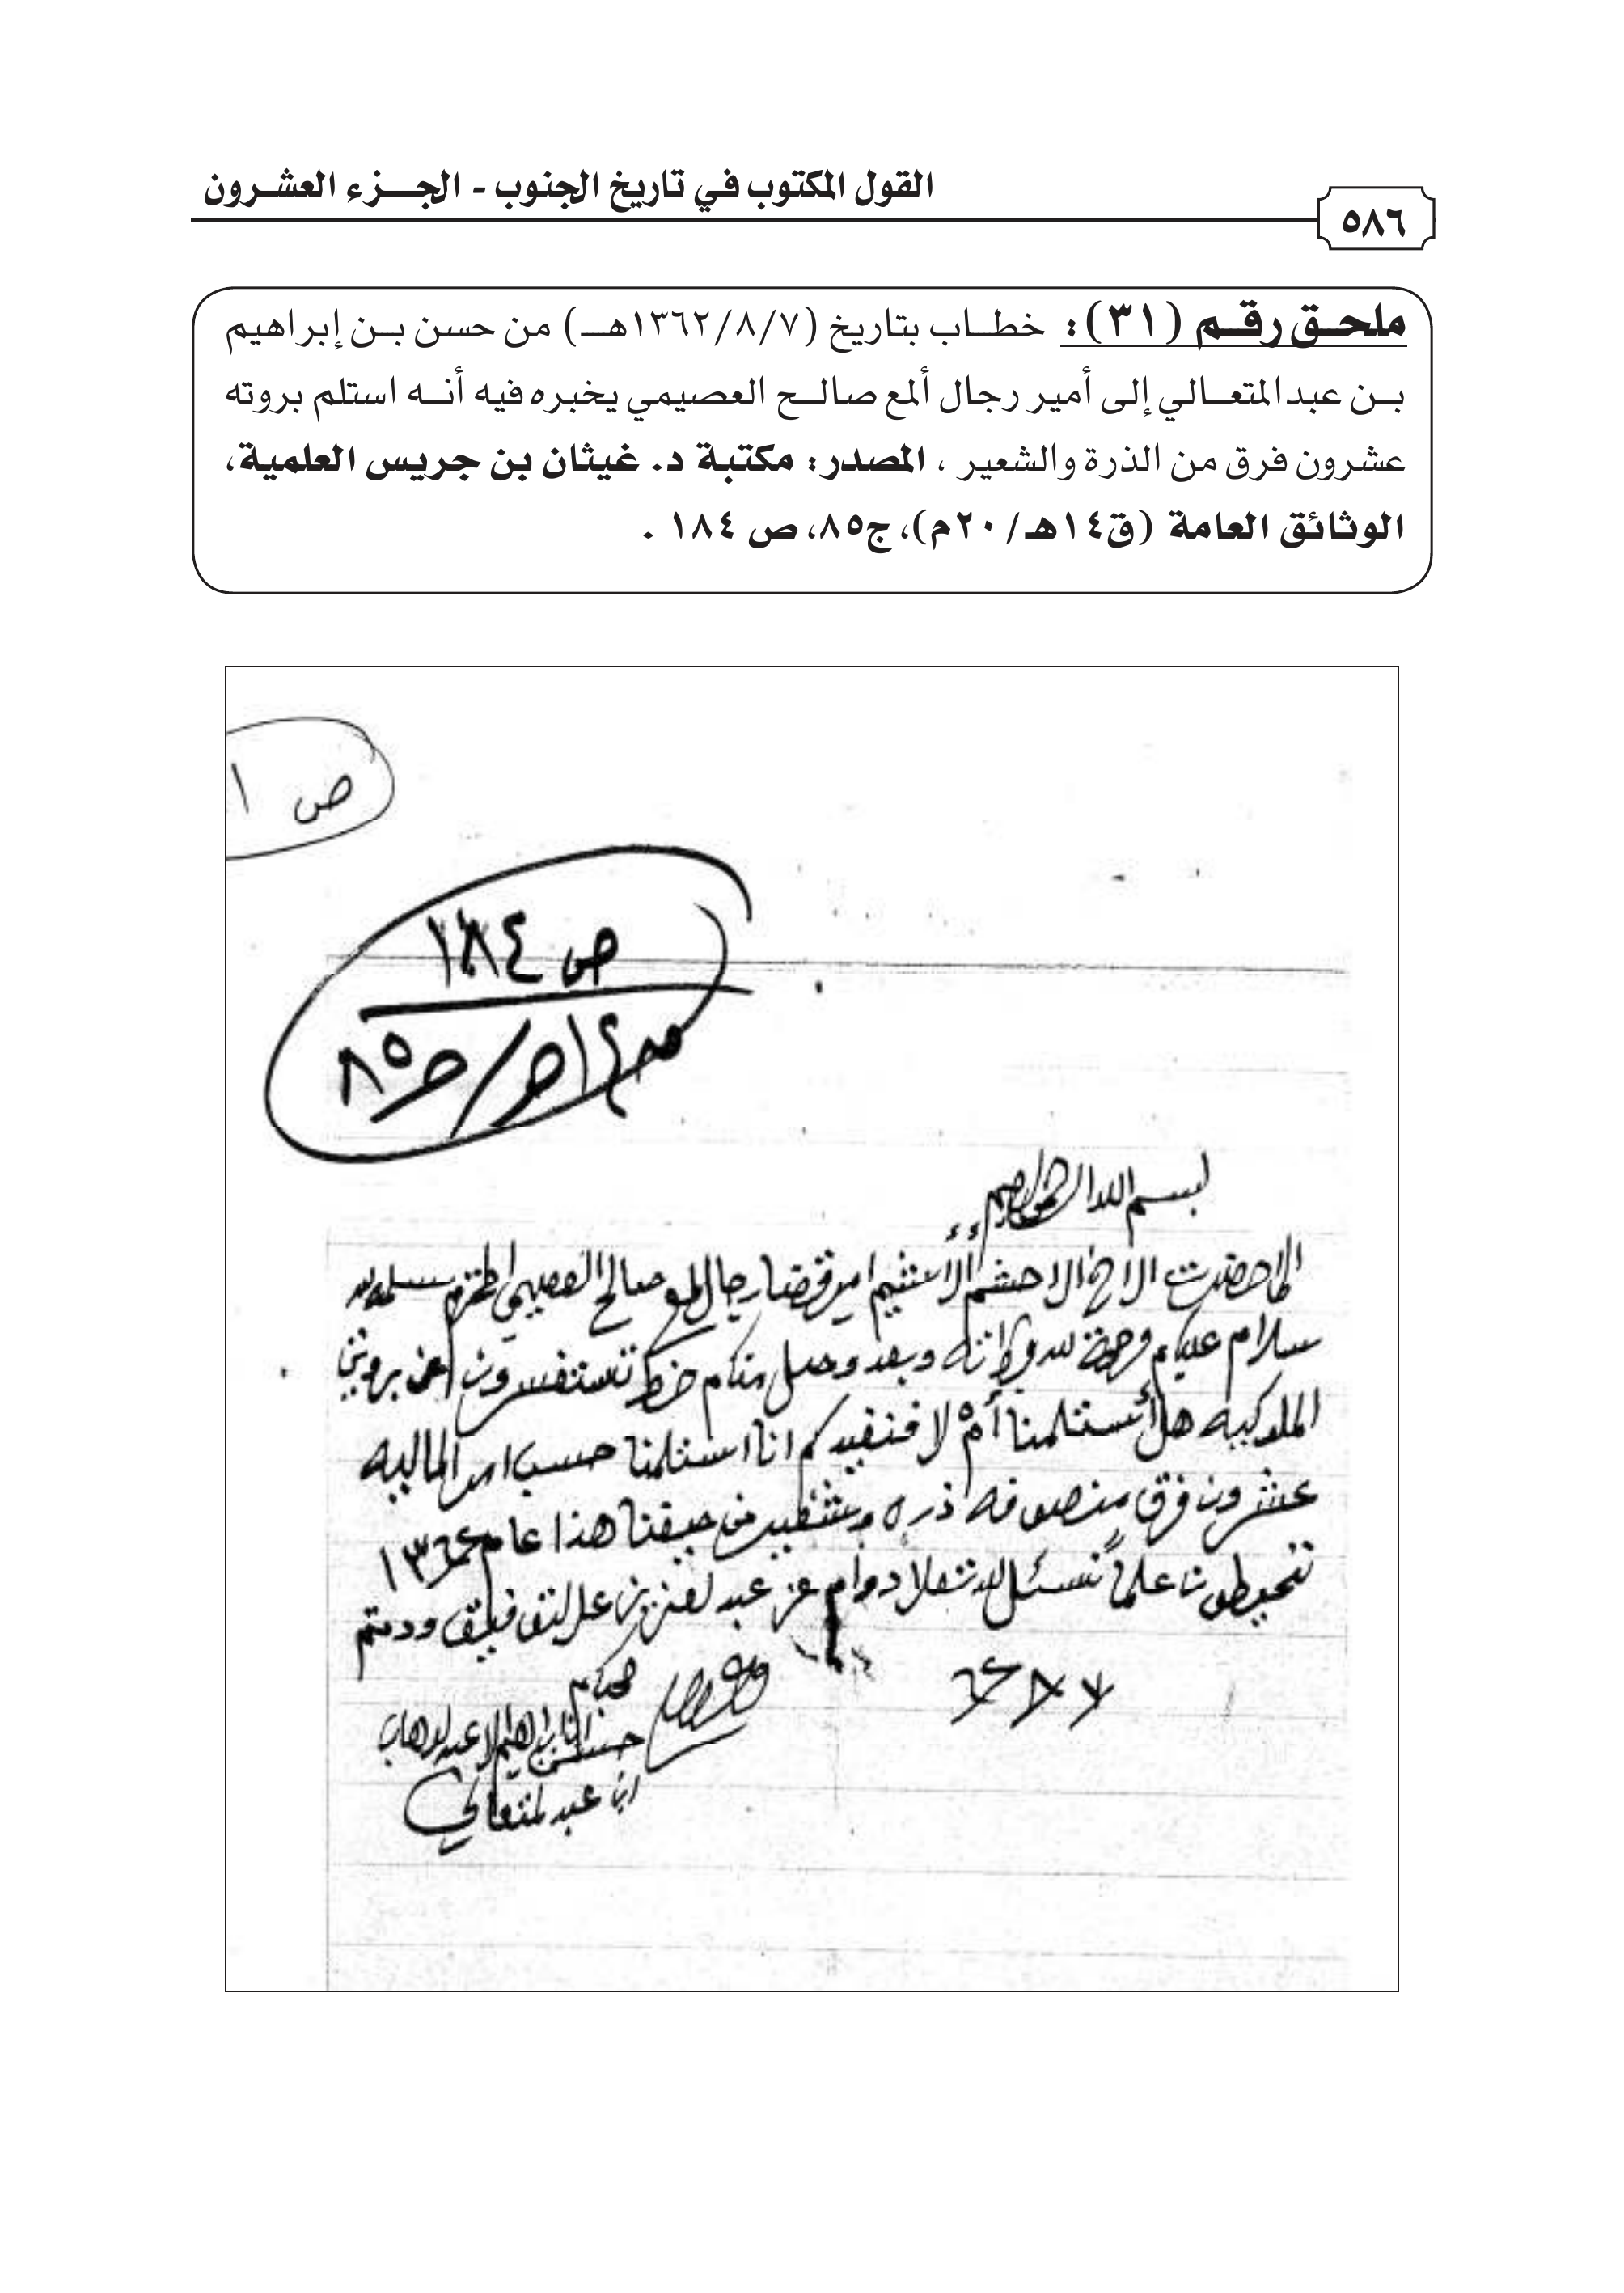 القول المكتوب في تاريخ الجنوب - الجزء العشرون
٥٨٦
ملحق رقم (٣١): خطاب بتاريخ (١٣٦٢/٨/٧هـ) من حسن بن إبراهيم
بن عبدالمتعالي إلى أمير رجال ألمع صالح العصيمي يخبره فيه أنه استلم بروته
عشرون فرق من الذرة والشعير ، المصدر: مكتبة د. غيثان بن جريس العلمية،
الوثائق العامة (ق١٤هـ/٢٠م)، ج٨٥، ص ١٨٤ .
ص ١
ص ١٨٤
ق١٤هـ/ج٨٥
بسم الله الرحمن الرحيم
الى حضرت الاخ الاحشم الاشيم امير قضا رجال المع صالح العصيمي المحترم سلمه الله
سلام عليكم ورحمة الله وبركاته وبعد وصل منكم خط تستفسرون عن بروتي
الملوكيه هل أستلمنا أم لا فنفيدكم انا استلمنا حسب امر الماليه
عشرون فرق منصوفه ذره وشعير هذا عام ١٣٦٢
تحيطون علماً نسئل الله دوام عز عبد لعزيز ودمتم
٧ ٨ ٦٢
حسن ابن ابراهيم عبد الوهاب
ابن عبد لمتعالي